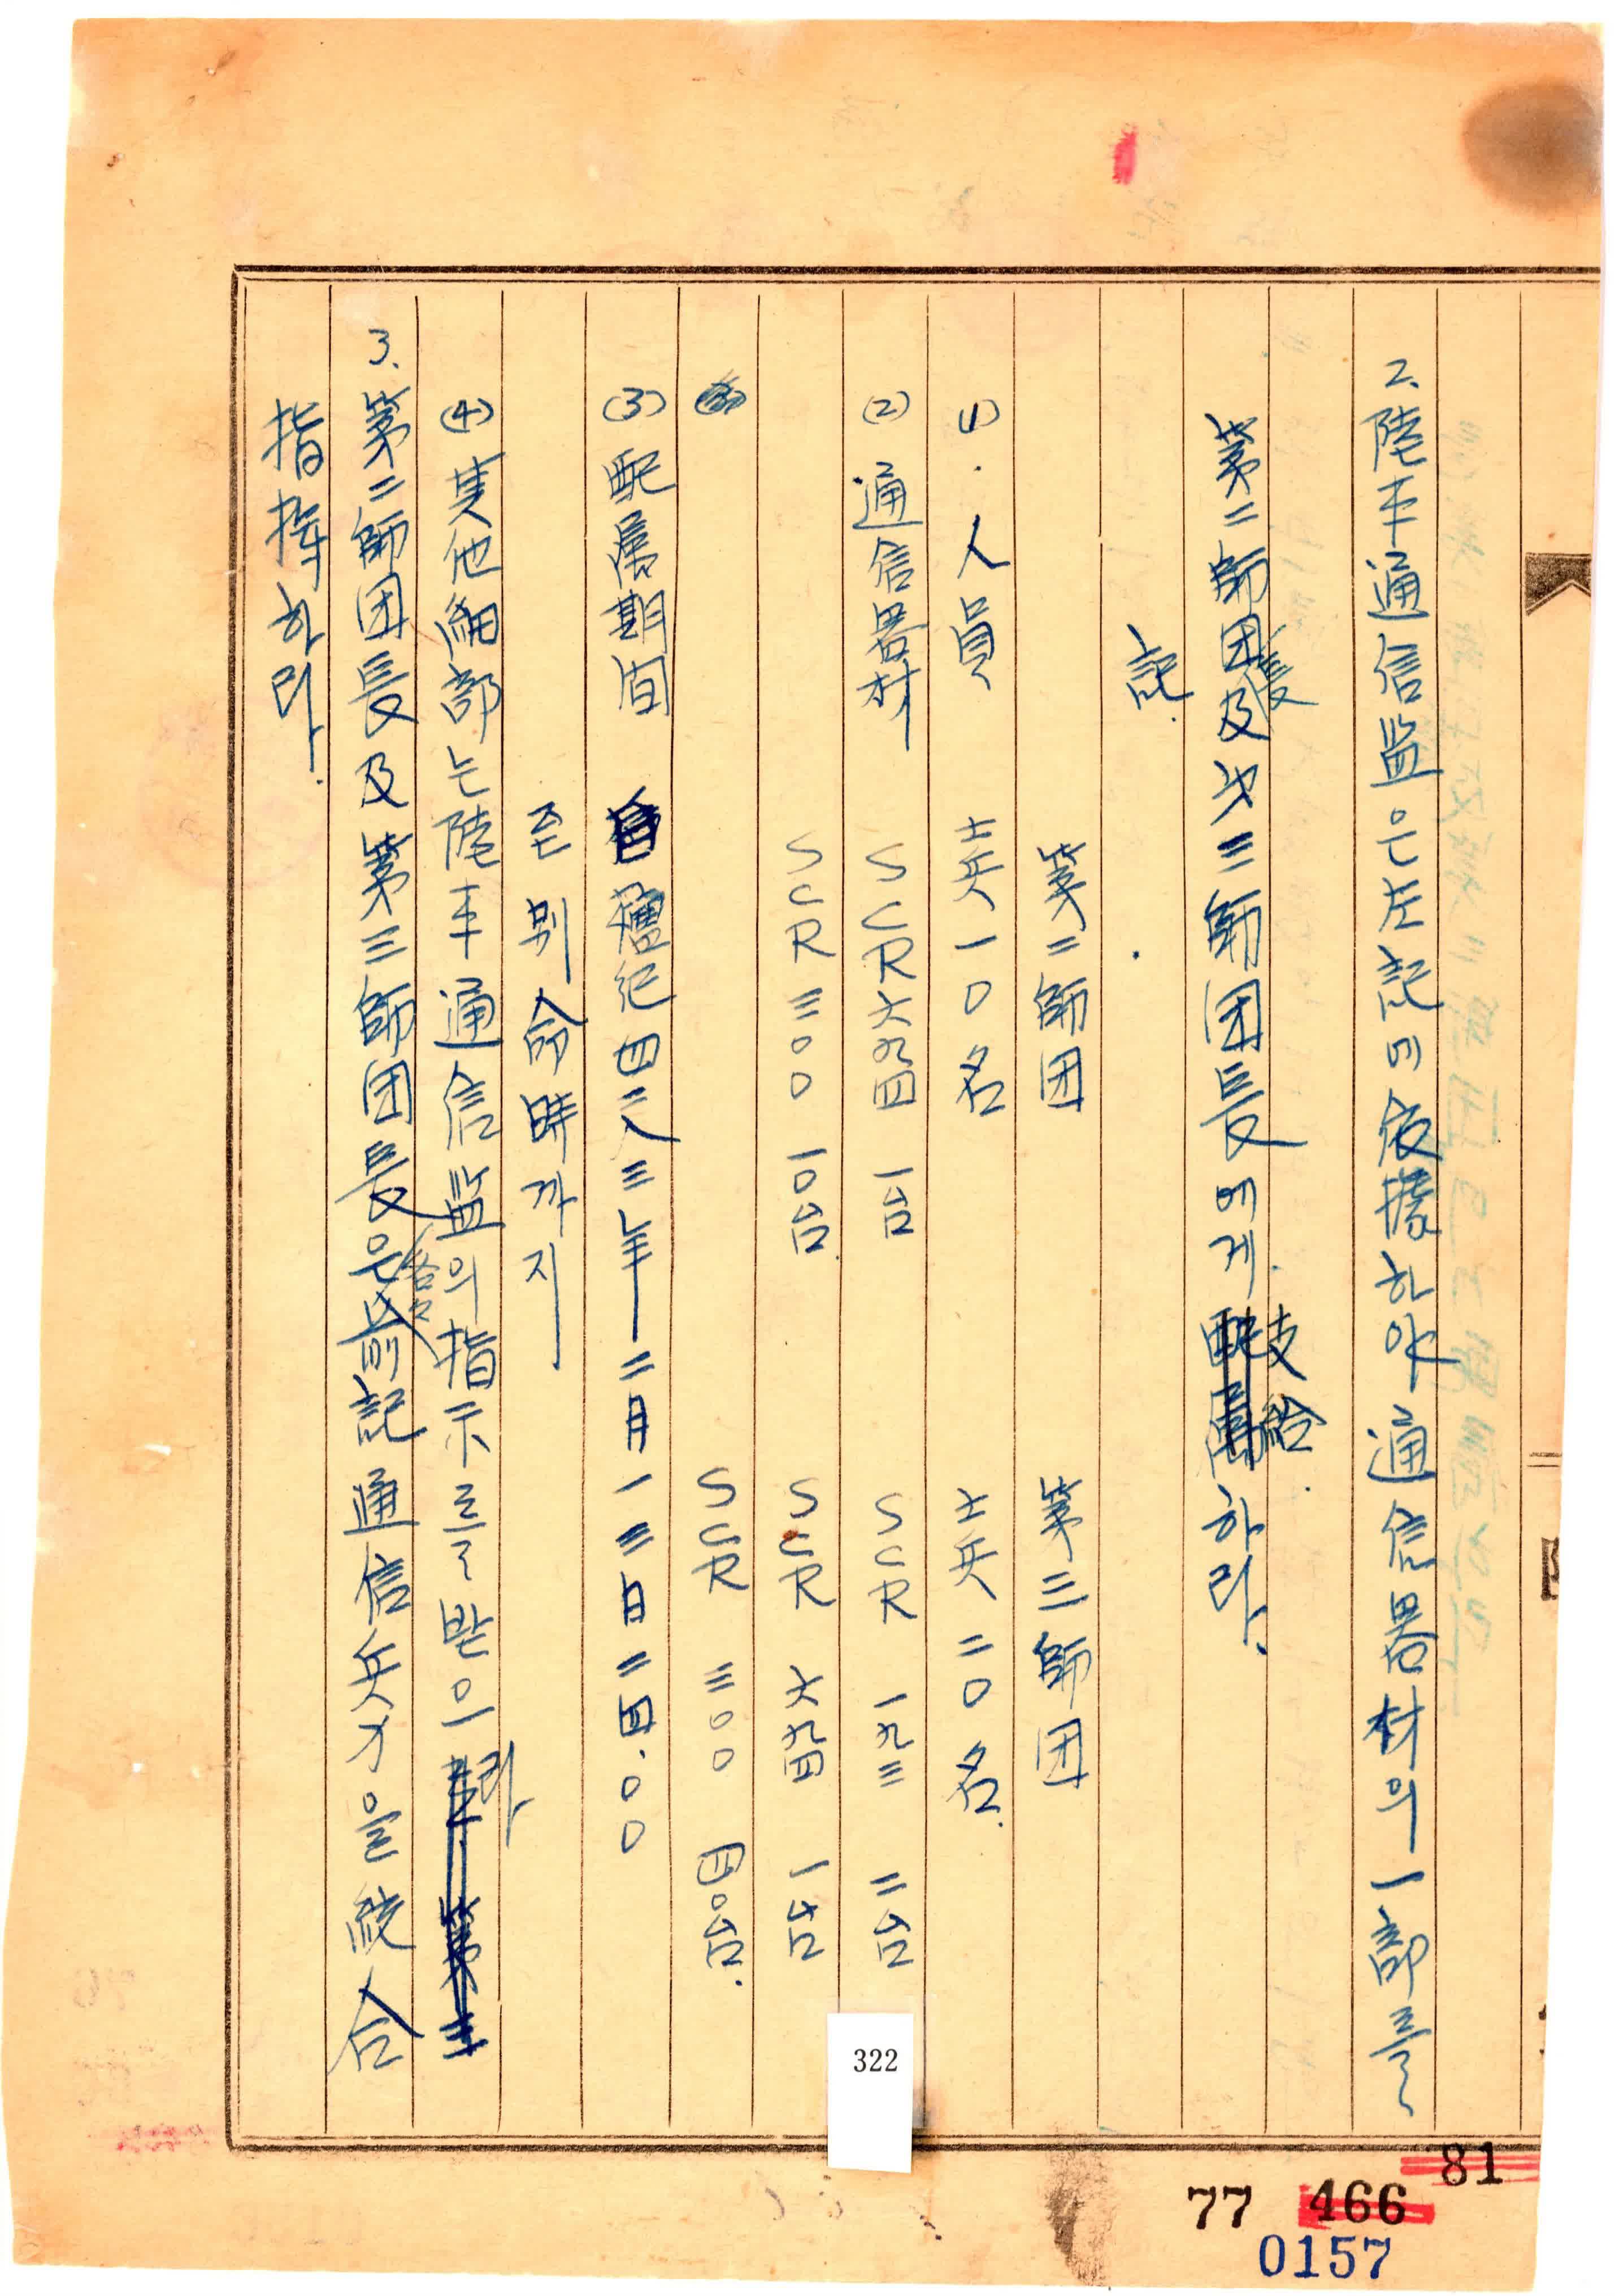 2. 陸本通信監은左記에依據하야 通信器材의一部를
第二師団長及才三師団長에게支給하라.
記.
第二師団 第三師団
(1). 人員 士兵一0名 士兵二0名.
(2) 通信器材 SCR六九四 一台 SCR 一九三 二台
SCR三00 一0台. SCR 六九四 一台
SCR 三00 四0台.
(3) 配属期间 自檀紀四二八三年二月一三日二四.00
至別命時까지
(4) 其他細部는陸本通信監의指示를받으라
3. 第二師団長及第三師団長은各々前記通信兵力을統合
指揮하라.
322
81
77 466
0157